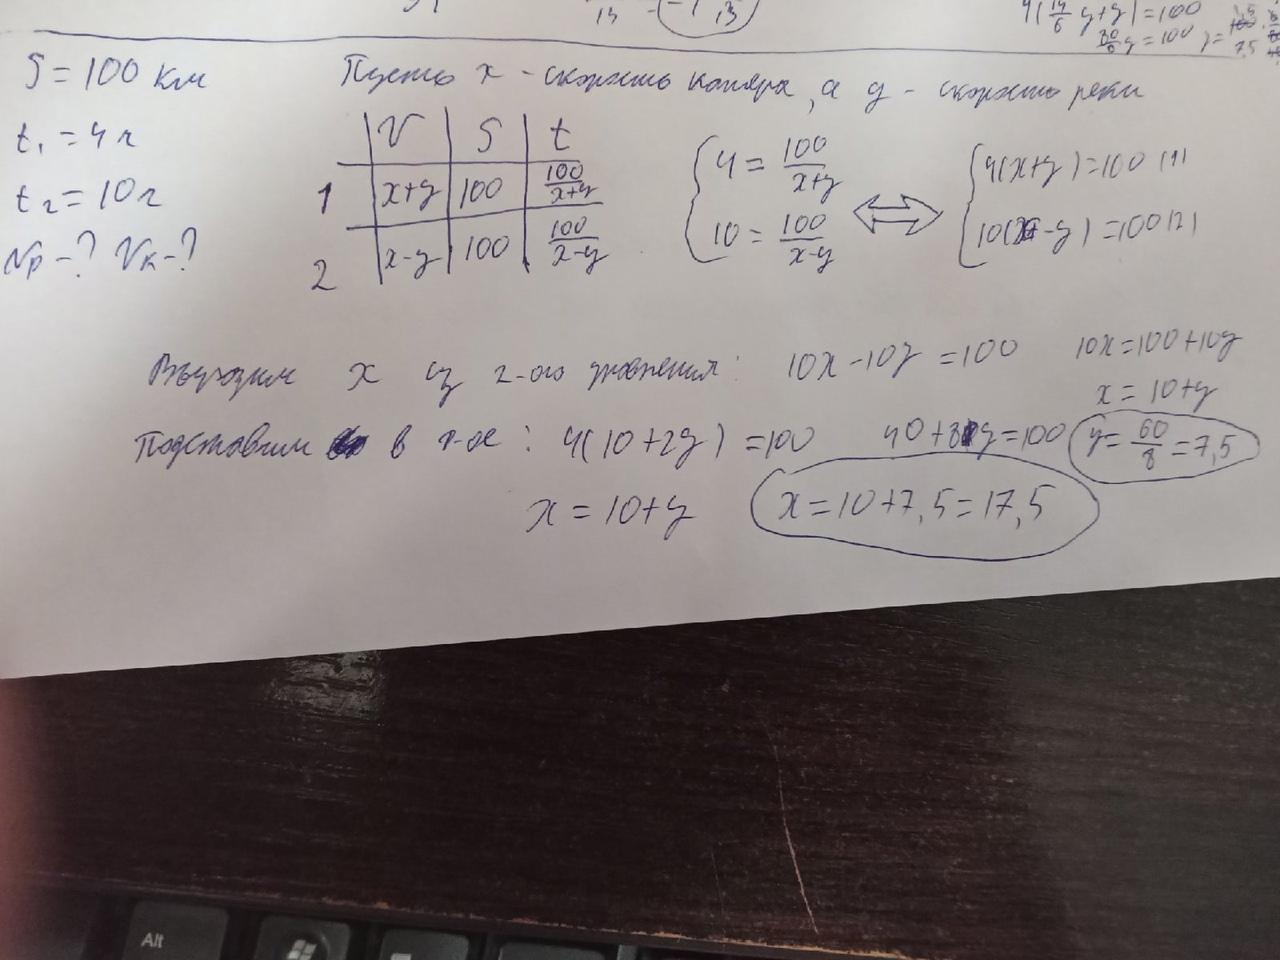 4(14/6 y+y)=100
S=100 км
Пусть x - скорость катера, а y - скорость реки
t₁=4ч
t₂=10ч
Vр-? Vк-?
V S t
1 x+y 100 100/x+y
2 x-y 100 100/x-y
{4=100/x+y
10=100/x-y
⇔
{4(x+y)=100 (1)
10(x-y)=100 (2)
Выразим x из 2-ого уравнения: 10x-10y=100 10x=100+10y
x=10+y
Подставим в 1-ое: 4(10+2y)=100 40+8y=100 y=60/8=7,5
x=10+y x=10+7,5=17,5
Alt